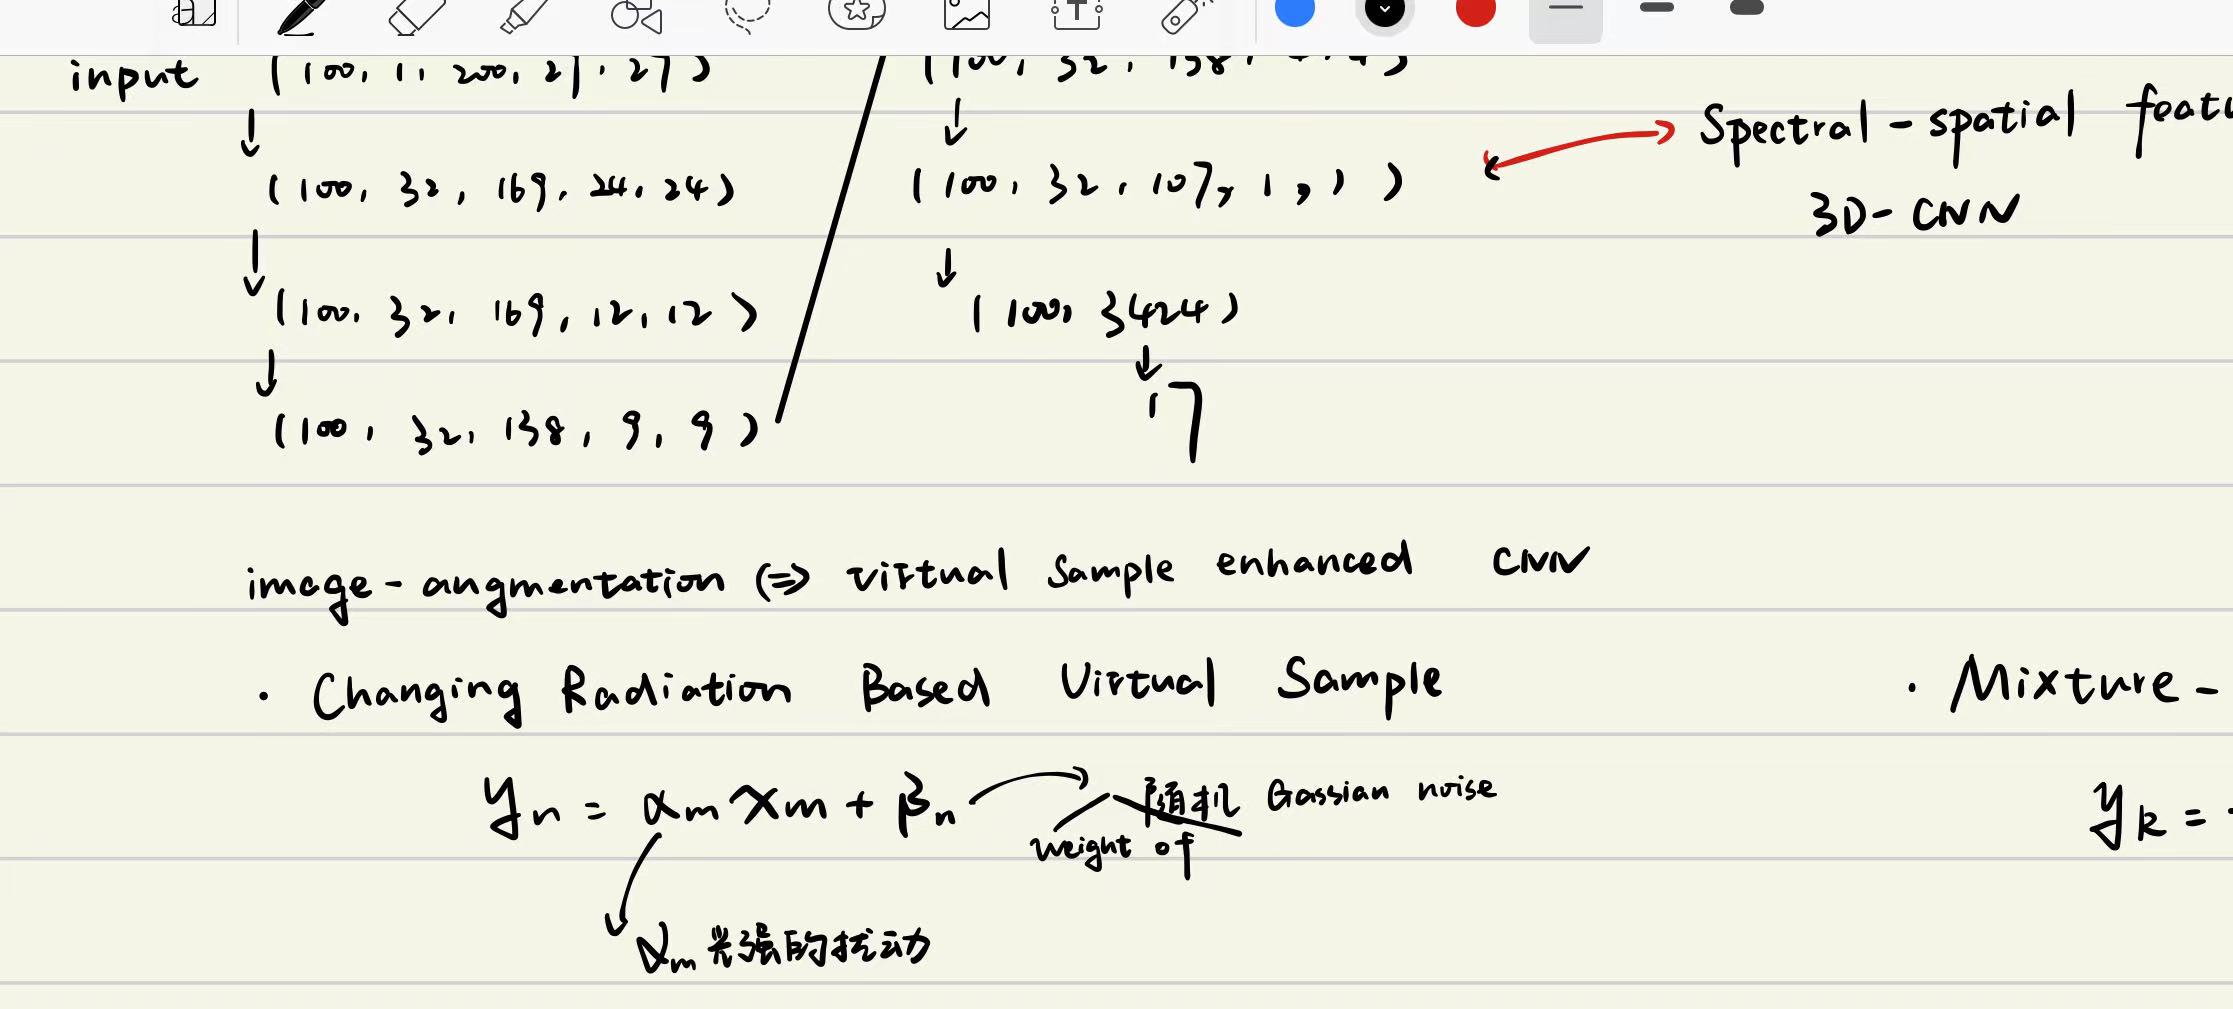 input (100, 1, 200, 27, 27)
(100, 32, 169, 24, 24)
(100, 32, 169, 12, 12)
(100, 32, 138, 9, 9)
(100, 32, 138,
(100, 32, 107, 1, 1)
(100, 3424)
17
Spectral-spatial featu
3D-CNN
image-angmentation (⇒ virtual sample enhanced CNN
· Changing Radiation Based Virtual Sample
yₙ = αₘxₘ + βₙ
随机 Gassian noise
weight of
αₘ光强的扰动
· Mixture-
yₖ =